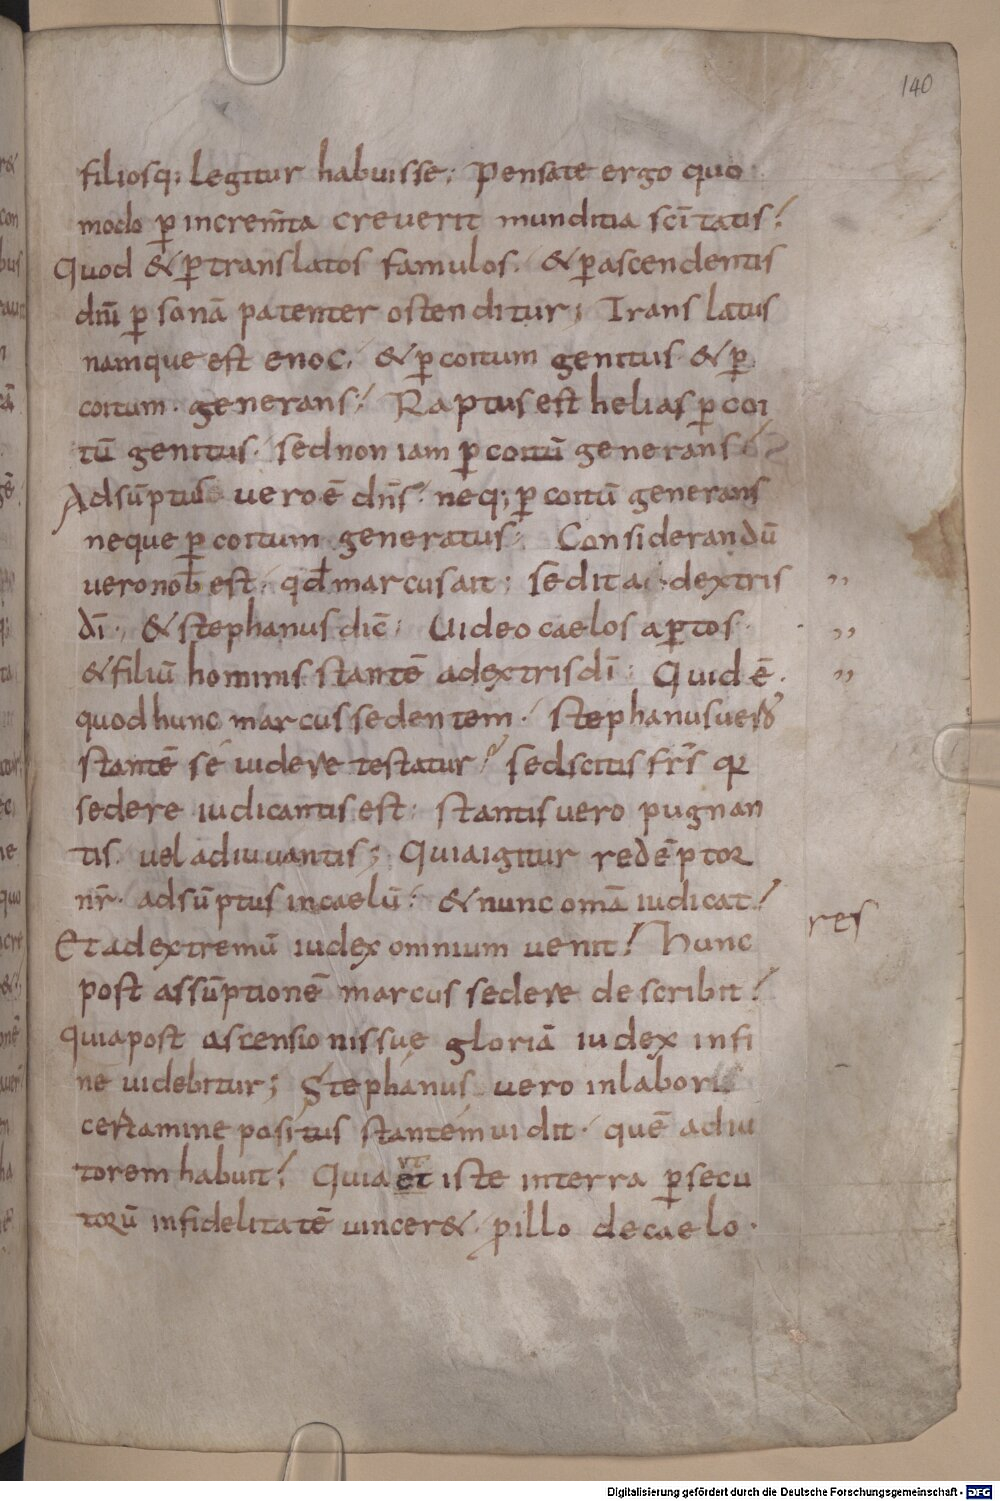 140
filiosq; legitur habuisse; Pensate ergo quo
modo p̲ increm̅ta creverit munditia sc̅itatis;
Quod & p̲ translatos famulos. & p̲ ascendentis
dn̅i p̲sonā patenter ostenditur; Translatus
namque est enoc. & p̲ coitum genitus & p̲
coitum generans; Raptus est helias p̲ coi
tū genitus. sed non iam p̲ coitū generans
Adsūptus vero ē dn̅s. neq; p̲ coitū generans
neque p̲ coitum generatus. Considerandū
vero nob̅ est. qd̅ marcus ait; sedit a dextris ,,
di̅. & stephanus dic̅; Uideo caelos ap̲tos. ,,
& filiū hominis stantē ad extris di̅; Quid ē. ,,
quod hunc marcus sedentem. stephanus uero
stantē se uidere testatur? sed scitis fr̅s qr
sedere iudicantis est; stantis uero pugnan
tis. uel adiuuantis; Quia igitur redēptor
nr̅. adsūptus in caelū; & nunc om̅a iudicat;
Et ad extremū iudex omnium uenit; Hunc res
post assūptionē marcus sedere describit;
quia post ascensionis sue gloriā iudex in fi
ne uidebitur; Stephanus uero in labori
certamine positus stantem uidit. quē adiu
torem habuit; Quia et iste in terra p̲secu
ut
torū infidelitatē uincer&. p̲ illo de caelo.
Digitalisierung gefördert durch die Deutsche Forschungsgemeinschaft - DFG